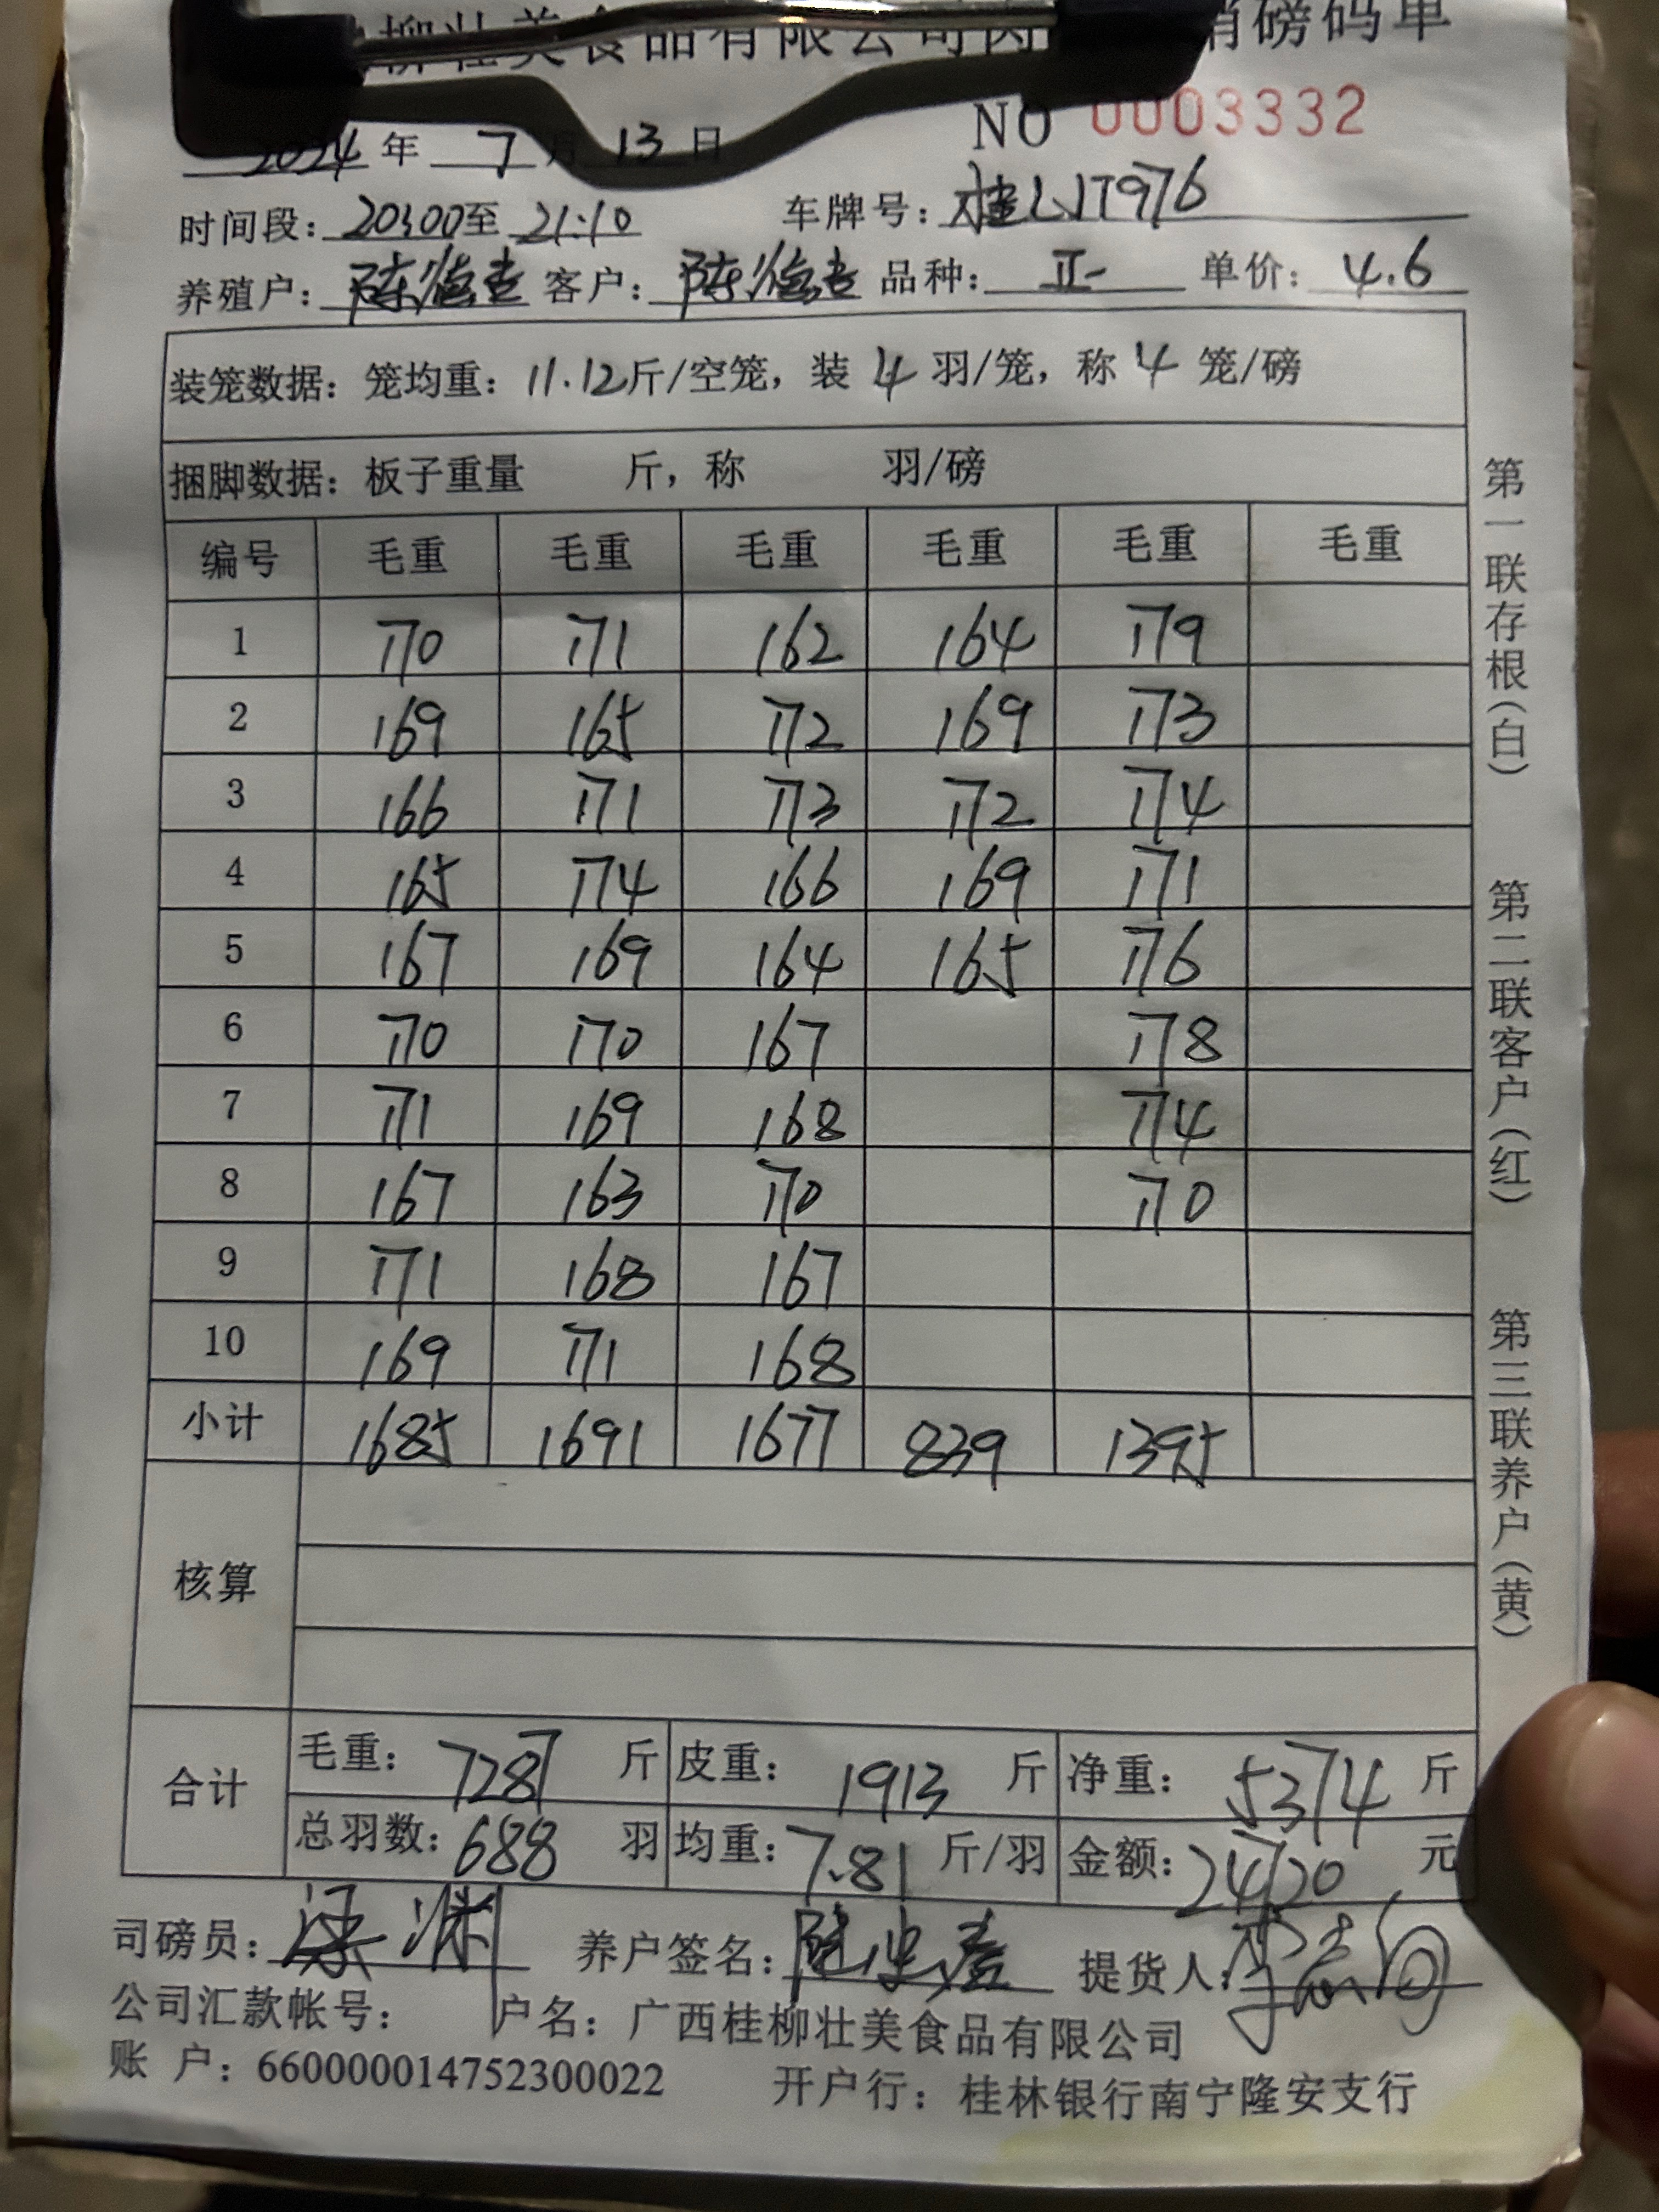 柳壮美食品有限公司肉 销磅码单
NO 0003332
2024年 7月 13日
时间段: 20:00至 21:10 车牌号: 桂LJT976
养殖户: 陈 客户: 陈 品种: 单价: 4.6
装笼数据: 笼均重: 11.12斤/空笼, 装 4 羽/笼, 称 4 笼/磅
捆脚数据: 板子重量 斤, 称 羽/磅
编号 毛重 毛重 毛重 毛重 毛重 毛重
1 170 171 162 164 179
2 169 165 172 169 173
3 166 171 173 172 174
4 165 174 166 169 171
5 167 169 164 165 176
6 170 170 167 178
7 171 169 168 174
8 167 163 170 170
9 171 168 167
10 169 171 168
小计 1685 1691 1677 839 1395
核算
合计
毛重: 7287 斤 皮重: 1913 斤 净重: 5374 斤
总羽数: 688 羽 均重: 7.81 斤/羽 金额: 24720 元
司磅员: 养户签名: 提货人:
公司汇款帐号: 户名: 广西桂柳壮美食品有限公司
账 户: 660000014752300022 开户行: 桂林银行南宁隆安支行
第一联存根(白) 第二联客户(红) 第三联养户(黄)